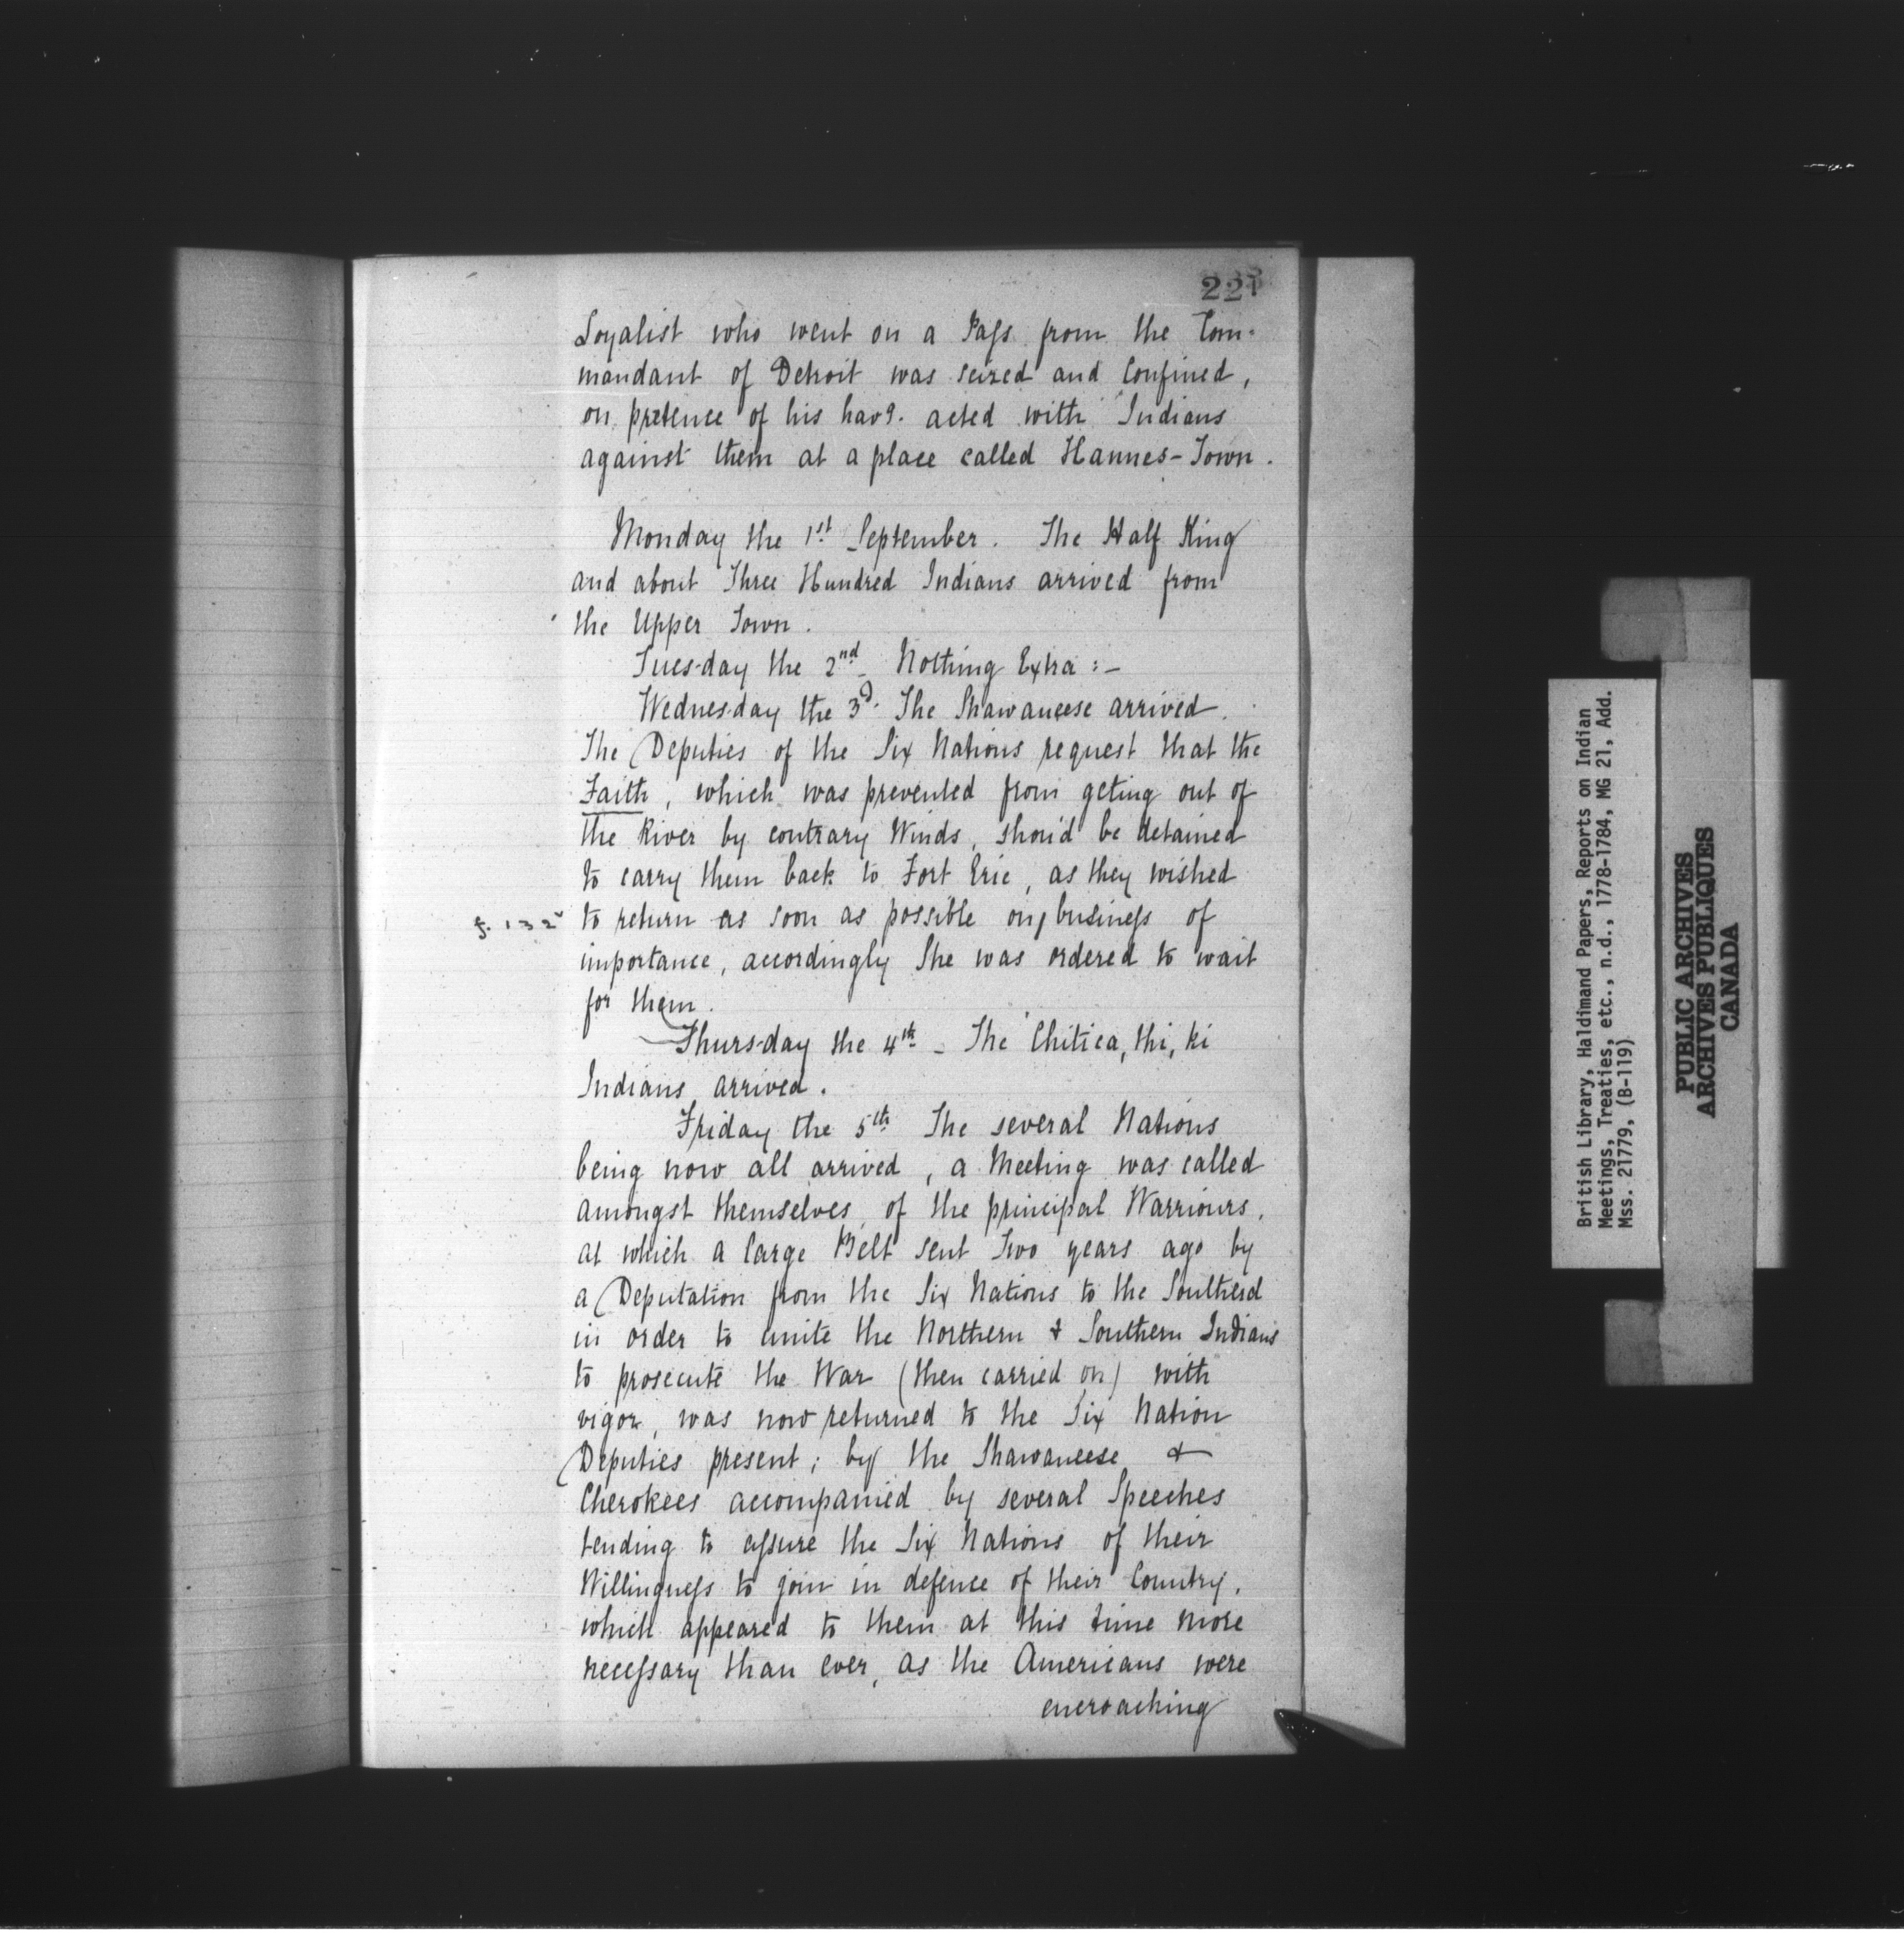 221
Loyalist who went on a Pass from the Com-
mandant of Detroit was seized and Confined,
on pretence of his havg. acted with Indians
against them at a place called Hannes-Town.
Monday the 1st September. The Half King
and about Three Hundred Indians arrived from
the Upper Town.
Tuesday the 2nd Nothing Extra :-
Wednesday the 3d. The Shawaneese arrived.
The Deputies of the Six Nations request that the
Faith, which was prevented from geting out of
the River by contrary Winds, shou'd be detained
to carry them back to Fort Erie, as they wished
f. 132v to return as soon as possible on / business of
importance, accordingly She was ordered to wait
for them.
Thursday the 4th - The Chitica, thi, ki
Indians arrived.
Friday the 5th The several Nations
being now all arrived, a Meeting was called
amongst themselves, of the principal Warriours,
at which a large Belt sent Two years ago by
a Deputation from the Six Nations to the Southerd
in order to unite the Northern & Southern Indians
to prosecute the War (then carried on) with
vigor, was now returned to the Six Nation
Deputies present; by the Shawaneese &
Cherokees accompanied by several Speeches
tending to assure the Six Nations of their
Willingness to join in defence of their Country,
which appeared to them at this time more
necessary than ever, as the Americans were
encroaching
British Library, Haldimand Papers, Reports on Indian
Meetings, Treaties, etc., n.d., 1778-1784, MG 21, Add.
Mss. 21779, (B-119)
PUBLIC ARCHIVES
ARCHIVES PUBLIQUES
CANADA